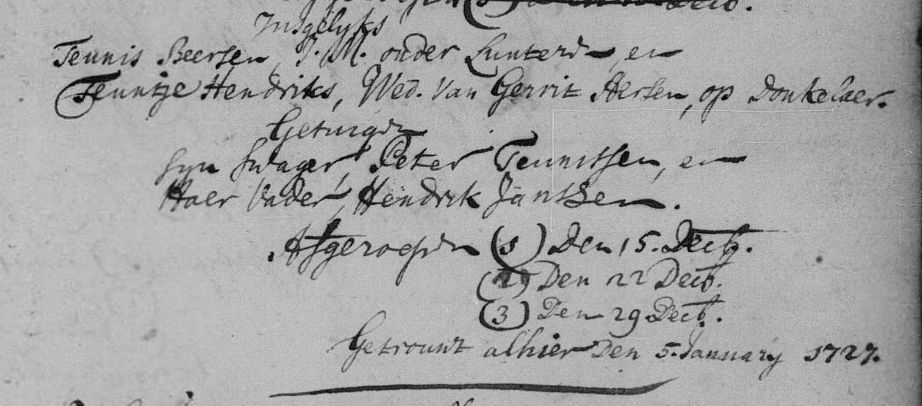 Insgelyks
Teunis Beersen, J. M. onder Lunteren, en
Teuntje Hendriks, Wed. Van Gerrit Aersen, op Donkelaer.
Getuigen
syn Swager, Peter Teunissen, en
Haer Vader, Hendrik Janssen.
Afgeroepen (1) Den 15. Decb.
(2) Den 22 Decb.
(3) Den 29 Decb.
Getrouwt alhier Den 5. January 1727.